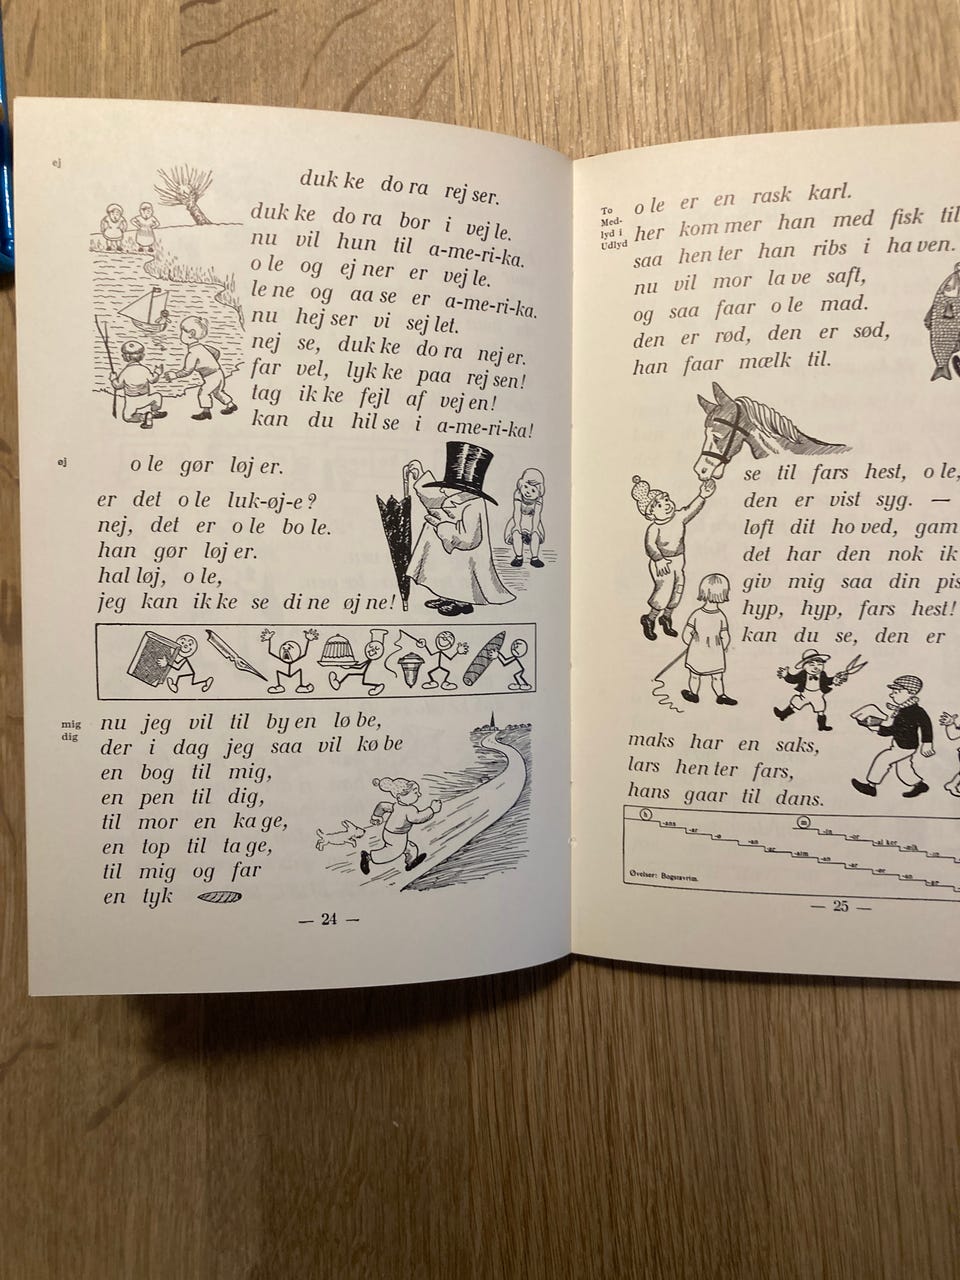 ej
duk ke do ra rej ser.
duk ke do ra bor i vej le.
nu vil hun til a-me-ri-ka.
o le og ej ner er vej le.
le ne og aa se er a-me-ri-ka.
nu hej ser vi sej let.
nej se, duk ke do ra nej er.
far vel, lyk ke paa rej sen!
tag ik ke fejl af vej en!
kan du hil se i a-me-ri-ka!
øj
o le gør løj er.
er det o le luk-øj-e?
nej, det er o le bo le.
han gør løj er.
hal løj, o le,
jeg kan ik ke se di ne øj ne!
mig
dig
nu jeg vil til by en lø be,
der i dag jeg saa vil kø be
en bog til mig,
en pen til dig,
til mor en ka ge,
en top til ta ge,
til mig og far
en tyk
— 24 —
To
Med-
lyd i
Udlyd
o le er en rask karl.
her kom mer han med fisk til
saa hen ter han ribs i ha ven.
nu vil mor la ve saft,
og saa faar o le mad.
den er rød, den er sød,
han faar mælk til.
se til fars hest, o le,
den er vist syg. —
løft dit ho ved, gam
det har den nok ik
giv mig saa din pis
hyp, hyp, fars hest!
kan du se, den er
maks har en saks,
lars hen ter fars,
hans gaar til dans.
Øvelser: Bogstavrim.
— 25 —